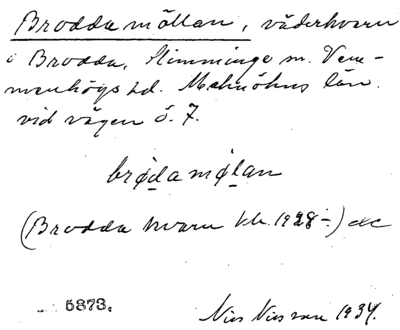 Broddamöllan, väderkvarn
i Brodda, Slimminge sn. Vem-
menhögs hd. Malmöhus län.
vid vägen ö. 7.
brödamölan
(Brodda kvarn kk. 1928 –) etc
5873.
Nils Nilsson 1934.